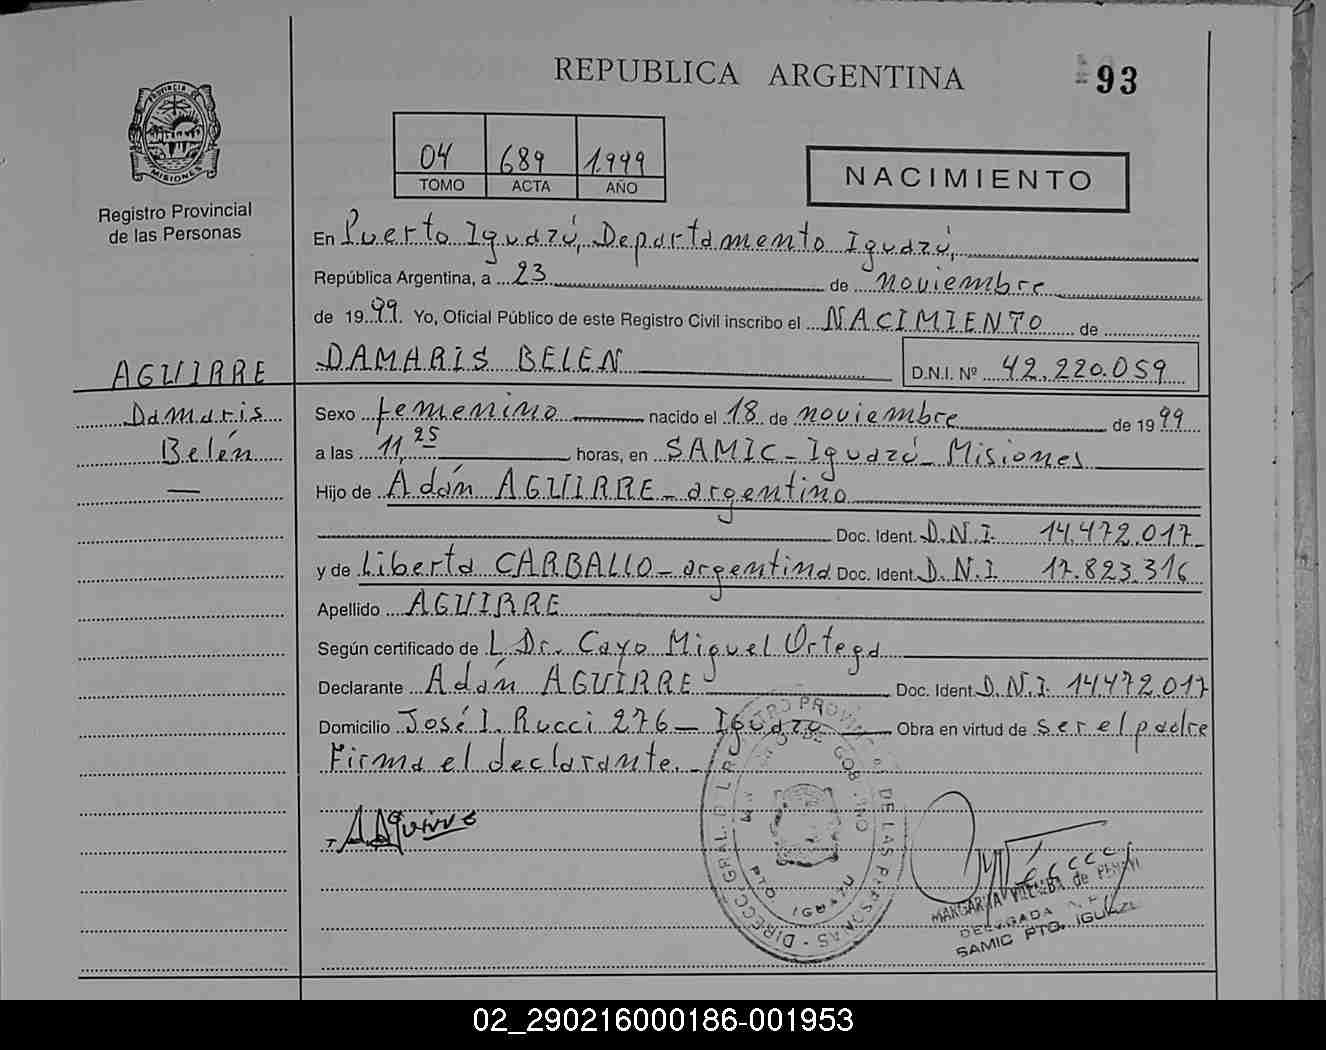 REPUBLICA ARGENTINA
93
PROVINCIA DE
MISIONES
Registro Provincial
de las Personas
04 689 1.999
TOMO ACTA AÑO
NACIMIENTO
En Puerto Iguazú, Departamento Iguazú,
República Argentina, a 23 de noviembre
de 1999. Yo, Oficial Público de este Registro Civil inscribo el NACIMIENTO de
DAMARIS BELEN D.N.I. Nº 42.220.059
AGUIRRE
Damaris
Belén
—
Sexo femenino nacido el 18 de noviembre de 1999
a las 11,25 horas, en SAMIC - Iguazú - Misiones
Hijo de Adán AGUIRRE - argentino
Doc. Ident. D.N.I. 14.472.017
y de Liberta CARBALLO - argentina Doc. Ident. D.N.I 17.823.316
Apellido AGUIRRE
Según certificado de L Dr. Cayo Miguel Ortega
Declarante Adán AGUIRRE Doc. Ident. D.N.I. 14.472.017
Domicilio José I. Rucci 276 - Iguazú Obra en virtud de ser el padre
Firma el declarante.-
A Aguirre
DIRECC. GRAL. DEL REGISTRO PROVINCIAL DE LAS PERSONAS
PTO IGUAZU
MARGARITA de
DELEGADA
SAMIC PTO. IGUAZU
02_290216000186-001953